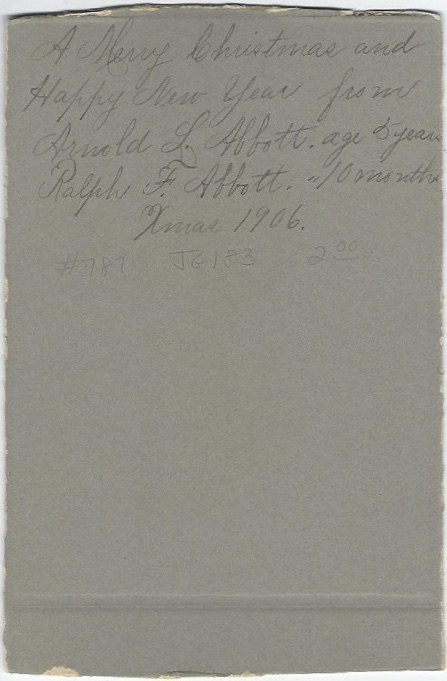 A Merry Christmas and
Happy New Year from
Arnold L. Abbott. age 5 years
Ralph F. Abbott. " 10 months
Xmas 1906.
#781 JG183 2.00